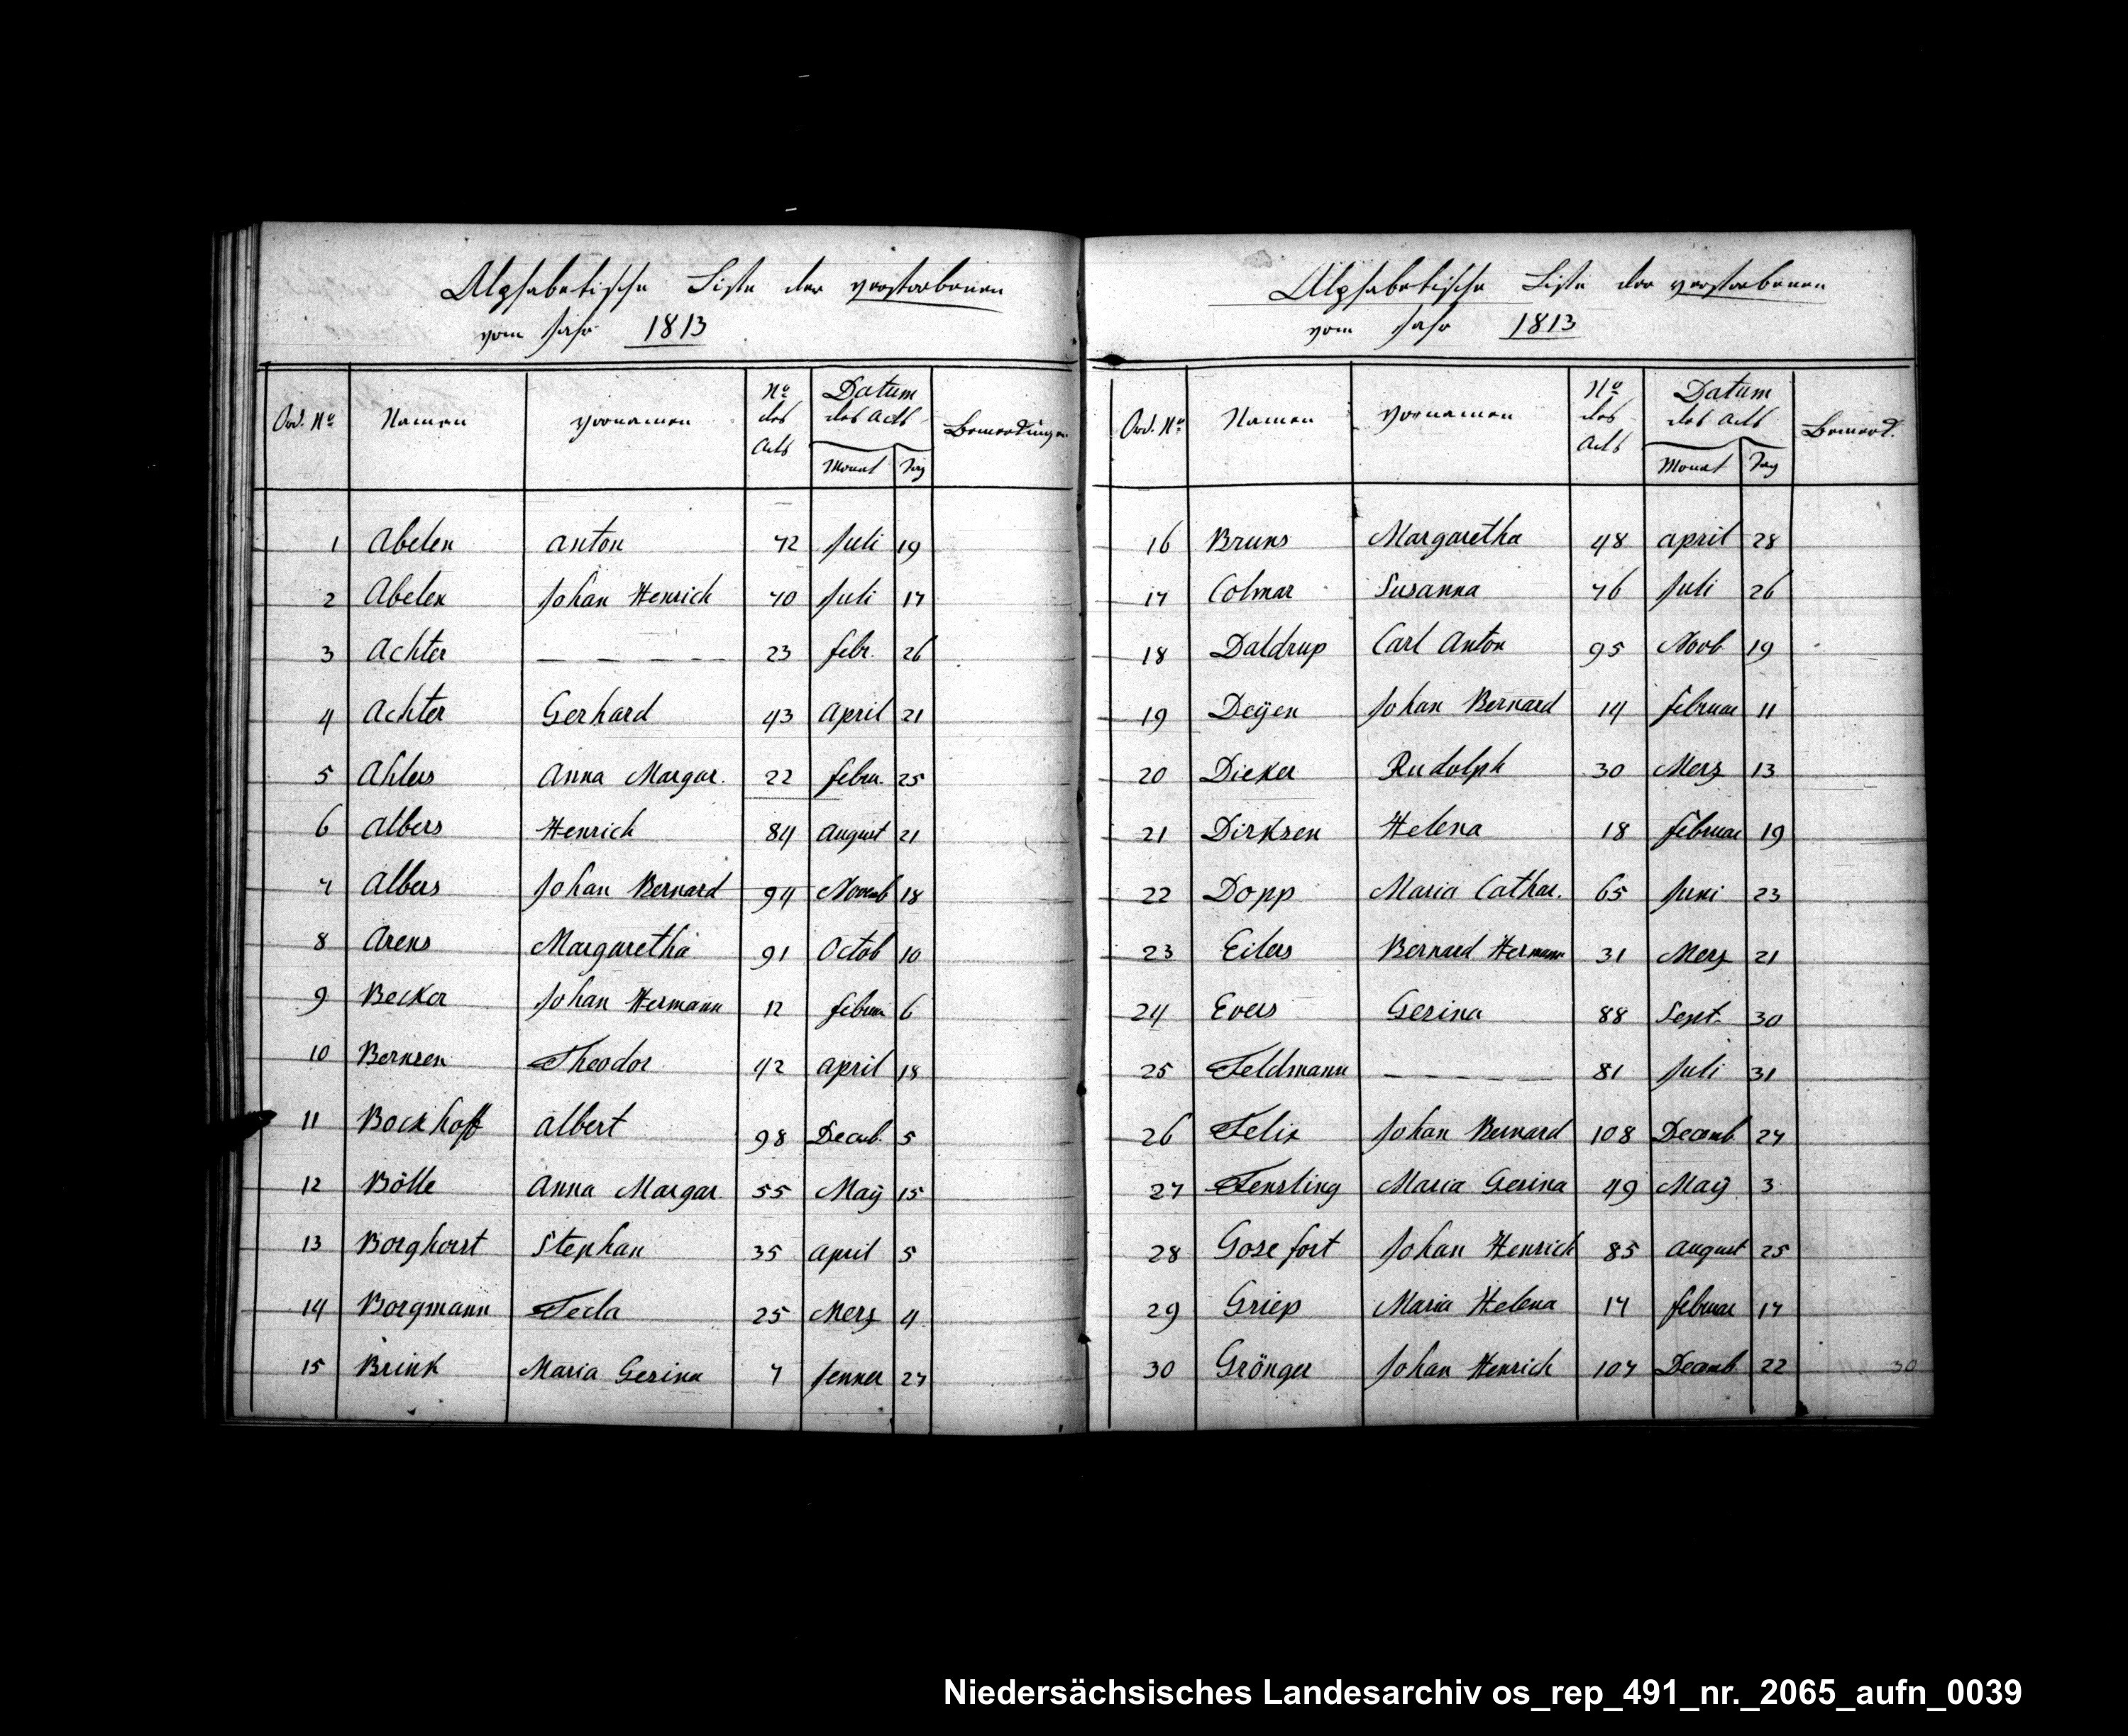 Alphabetische Liste der verstorbenen
vom Jahr 1813
Ord. No Namen Vornamen No des Acts Datum des Acts Monat Tag Bemerckungen
1 Abelen Anton 72 Juli 19
2 Abelen Johan Henrich 70 Juli 17
3 Achter — — — — — 23 febr. 26
4 Achter Gerhard 43 April 21
5 Ahlers Anna Margar. 22 febru. 25
6 Albers Henrich 84 August 21
7 Albers Johan Bernard 94 Novemb 18
8 Arens Margaretha 91 Octob 10
9 Becker Johan Hermann 12 februa 6
10 Bernsen Theodor 42 April 18
11 Bockhoff Albert 98 Decemb. 5
12 Bölle Anna Margar. 55 Maÿ 15
13 Borghorst Stephan 35 April 5
14 Borgmann Tecla 25 Merz 4
15 Brink Maria Gesina 7 Jenner 27
Alphabetische Liste der verstorbenen
vom Jahr 1813
Ord. No Namen Vornamen No des Acts Datum des Acts Monat Tag Bemerck.
16 Bruns Margaretha 48 April 28
17 Colmar Susanna 76 Juli 26
18 Daldrup Carl Anton 95 Novb 19
19 Deÿen Johan Bernard 14 februar 11
20 Dieker Rudolph 30 Merz 13
21 Dirksen Helena 18 februar 19
22 Dopp Maria Cathar. 65 Juni 23
23 Eilers Bernard Hermann 31 Merz 21
24 Evers Gesina 88 Sept. 30
25 Feldmann — — — — — 81 Juli 31
26 Felix Johan Bernard 108 Decemb. 27
27 Fensling Maria Gesina 49 Maÿ 3
28 Gosefort Johan Henrich 85 August 25
29 Griep Maria Helena 17 februar 17
30 Grönger Johan Henrich 107 Decemb. 22
30
Niedersächsisches Landesarchiv os_rep_491_nr._2065_aufn_0039